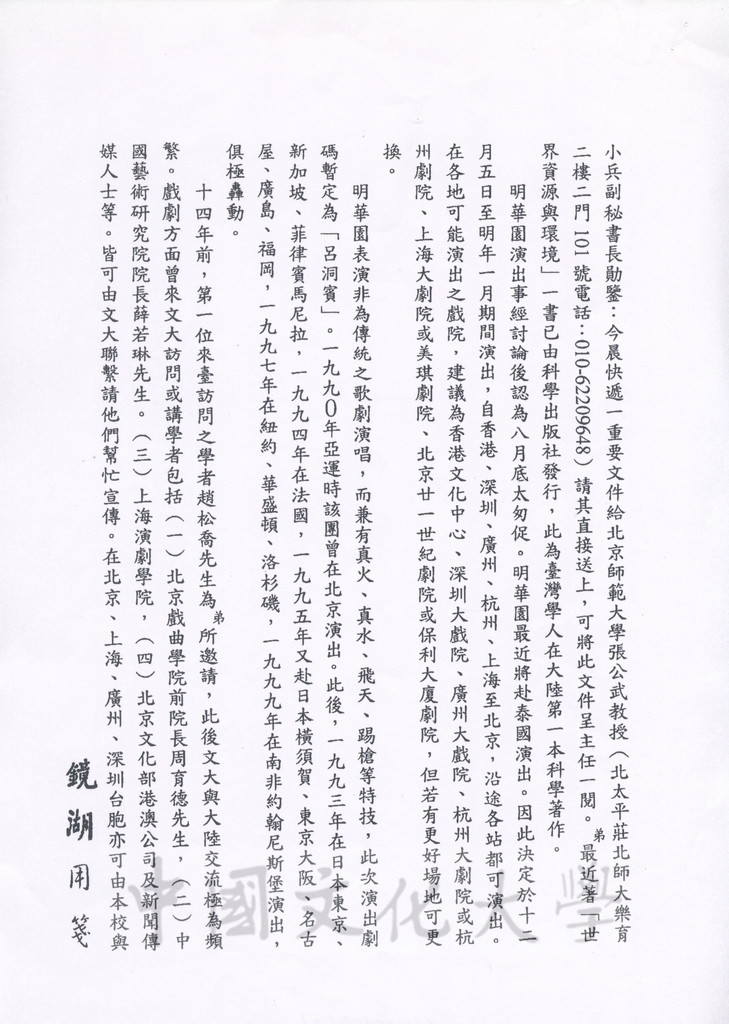 小兵副秘書長勛鑒：今晨快遞一重要文件給北京師範大學張公武教授（北太平莊北師大樂育
二樓二門101號電話：010-62209648）請其直接送上，可將此文件呈主任一閱。弟最近著「世
界資源與環境」一書已由科學出版社發行，此為臺灣學人在大陸第一本科學著作。
明華園演出事經討論後認為八月底太匆促。明華園最近將赴泰國演出。因此決定於十二
月五日至明年一月期間演出，自香港、深圳、廣州、杭州、上海至北京，沿途各站都可演出。
在各地可能演出之戲院，建議為香港文化中心、深圳大戲院、廣州大戲院、杭州大劇院或杭
州劇院、上海大劇院或美琪劇院、北京廿一世紀劇院或保利大廈劇院，但若有更好場地可更
換。
明華園表演非為傳統之歌劇演唱，而兼有真火、真水、飛天、踢槍等特技，此次演出劇
碼暫定為「呂洞賓」。一九九0年亞運時該團曾在北京演出。此後，一九九三年在日本東京、
新加坡、菲律賓馬尼拉，一九九四年在法國，一九九五年又赴日本橫須賀、東京大阪、名古
屋、廣島、福岡，一九九七年在紐約、華盛頓、洛杉磯，一九九九年在南非約翰尼斯堡演出，
俱極轟動。
十四年前，第一位來臺訪問之學者趙松喬先生為弟所邀請，此後文大與大陸交流極為頻
繁。戲劇方面曾來文大訪問或講學者包括（一）北京戲曲學院前院長周育德先生，（二）中
國藝術研究院院長薛若琳先生。（三）上海演劇學院，（四）北京文化部港澳公司及新聞傳
媒人士等。皆可由文大聯繫請他們幫忙宣傳。在北京、上海、廣州、深圳台胞亦可由本校與
鏡湖用箋
中國文化大學